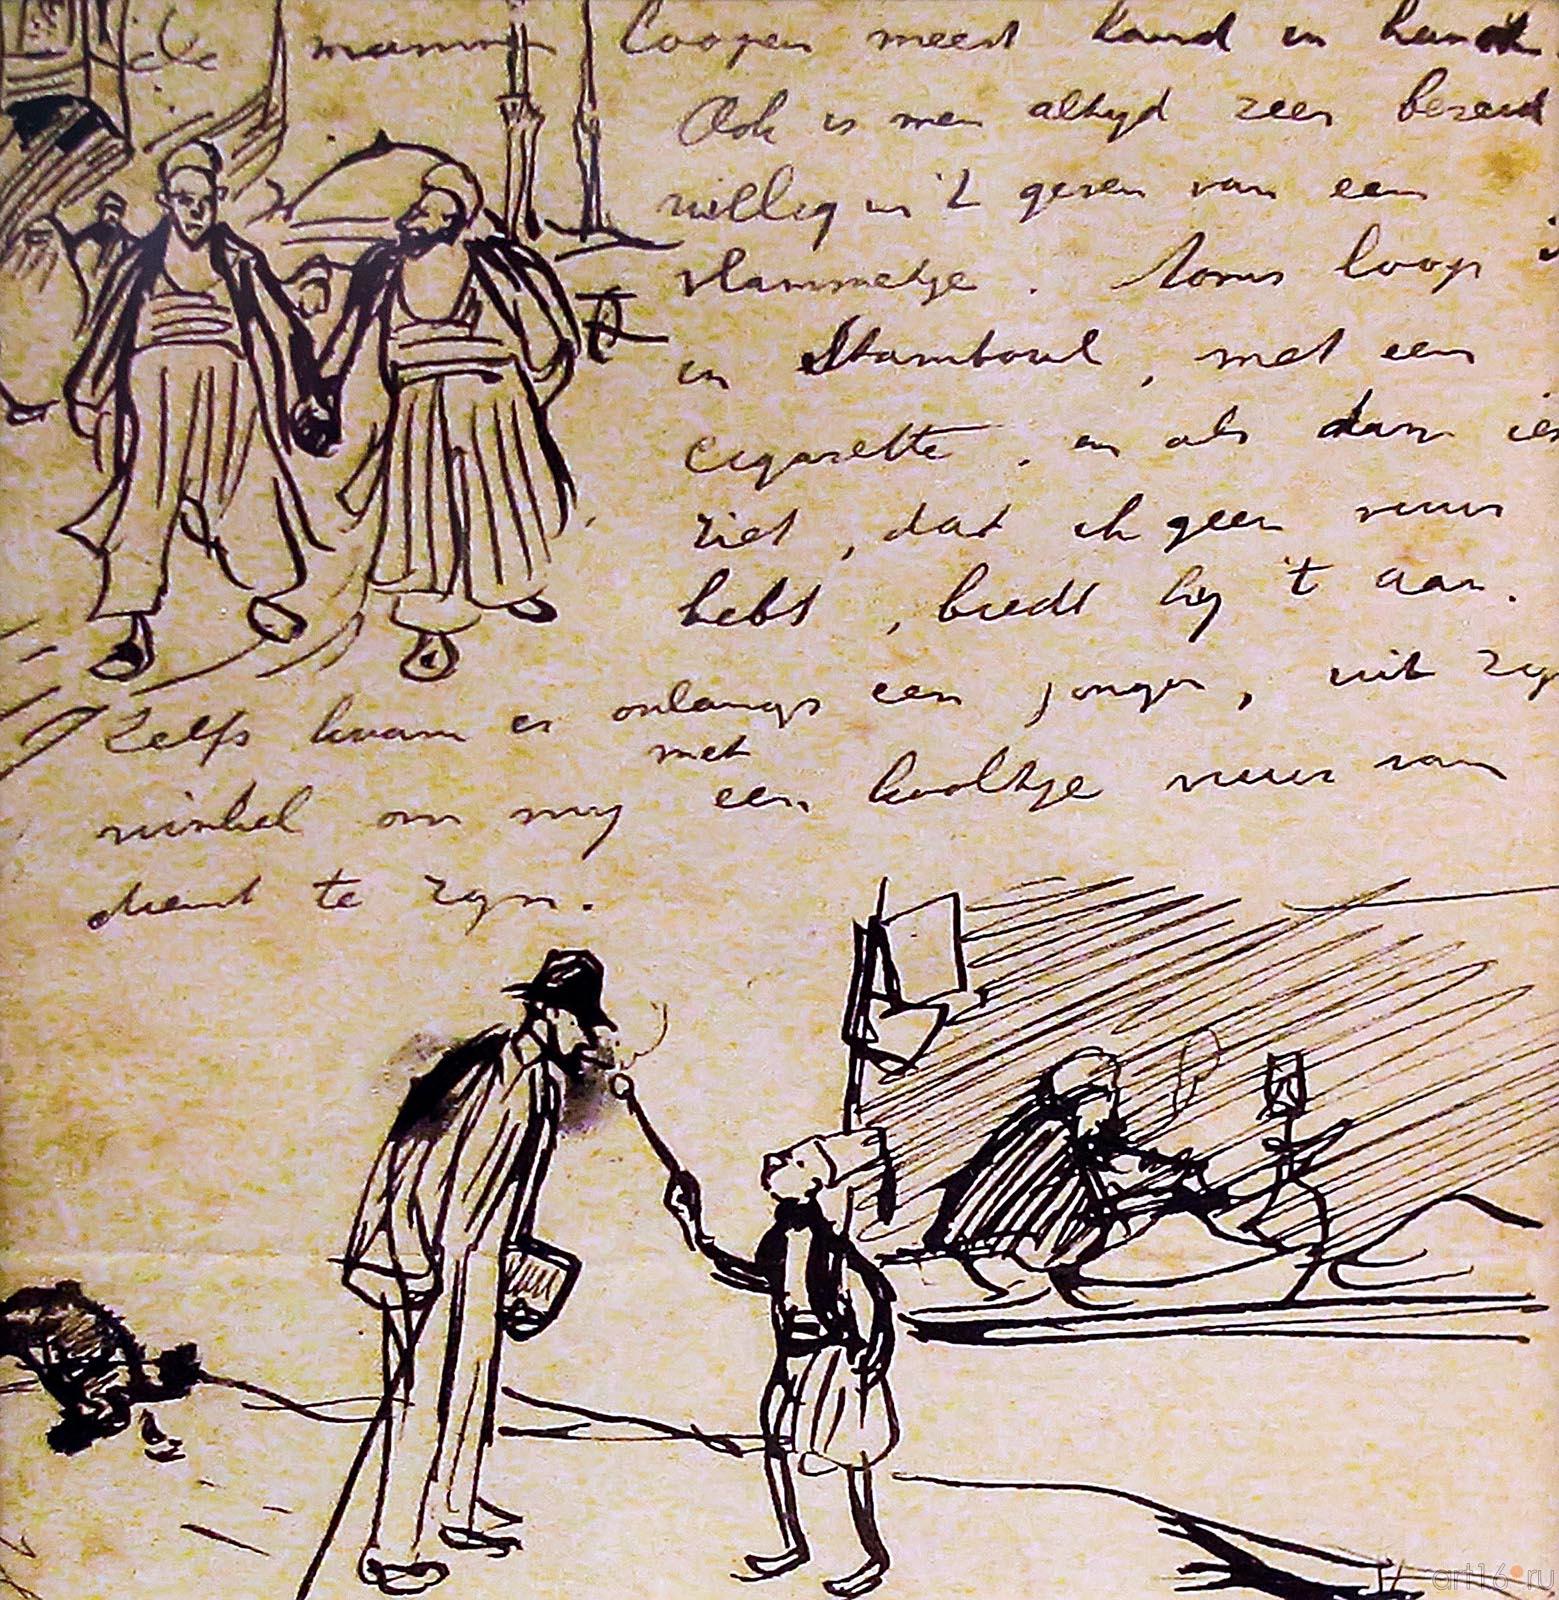 de mannen loopen meest hand in hand.
Ook is men altijd zeer bereid
willig in 't geven van een
vlammetje. Soms loop i
in Stamboul, met een
cigarette, en als dan ie
ziet, dat ik geen vuur
hebt, biedt hij 't aan.
Zelfs kwam er onlangs een jongen, uit zijn
winkel om mij met een kooltje vuur van
dienst te zijn.
art16.ru